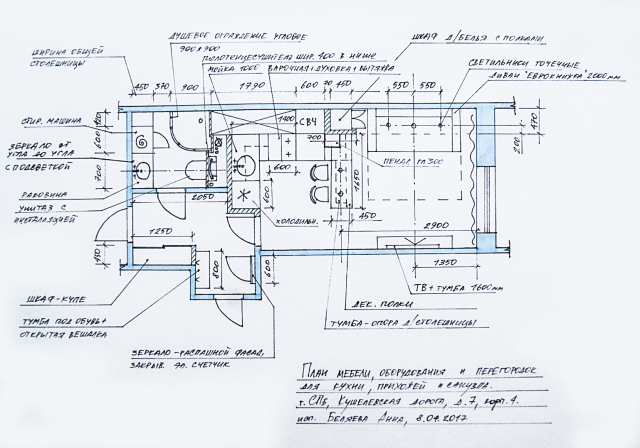 ДУШЕВОЕ ОГРАЖДЕНИЕ УГЛОВОЕ
900×900
ПОЛОТЕНЦЕСУШИТЕЛЬ ШИР. 400 В НИШЕ
МОЙКА 1000 ВАРОЧНАЯ+ДУХОВКА+ВЫТЯЖКА
ШКАФ Д/БЕЛЬЯ С ПОЛКАМИ
СВЕТИЛЬНИКИ ТОЧЕЧНЫЕ
ДИВАН "ЕВРОКНИЖКА" 2000мм
ШИРИНА ОБЩЕЙ
СТОЛЕШНИЦЫ
450 370 900 1790 600 70 450 550 550
СТИР. МАШИНА
ЗЕРКАЛО ОТ
УГЛА ДО УГЛА
С ПОДСВЕТКОЙ
РАКОВИНА
УНИТАЗ С
ИНСТАЛЛЯЦИЕЙ
120
600
700
1400
СВЧ
700
ПЕНАЛ ГЛ 300
470
200
1650
600
ХОЛОДИЛЬН.
450
2050
1250
2900
450
800
600
1350
ШКАФ-КУПЕ
ТУМБА ПОД ОБУВЬ+
ОТКРЫТАЯ ВЕШАЛКА
ТВ+ТУМБА 1600мм
ДЕК. ПОЛКИ
ТУМБА-ОПОРА Д/СТОЛЕШНИЦЫ
ЗЕРКАЛО-РАСПАШНОЙ ФАСАД,
ЗАКРЫВ. ЭЛ. СЧЕТЧИК
ПЛАН МЕБЕЛИ, ОБОРУДОВАНИЯ И ПЕРЕГОРОДОК
ДЛЯ КУХНИ, ПРИХОЖЕЙ И САНУЗЛА.
г. СПб, КУШЕЛЕВСКАЯ ДОРОГА, Д. 7, КОРП. 4.
ИСП. БЕЛЯЕВА АННА, 8.04.2017